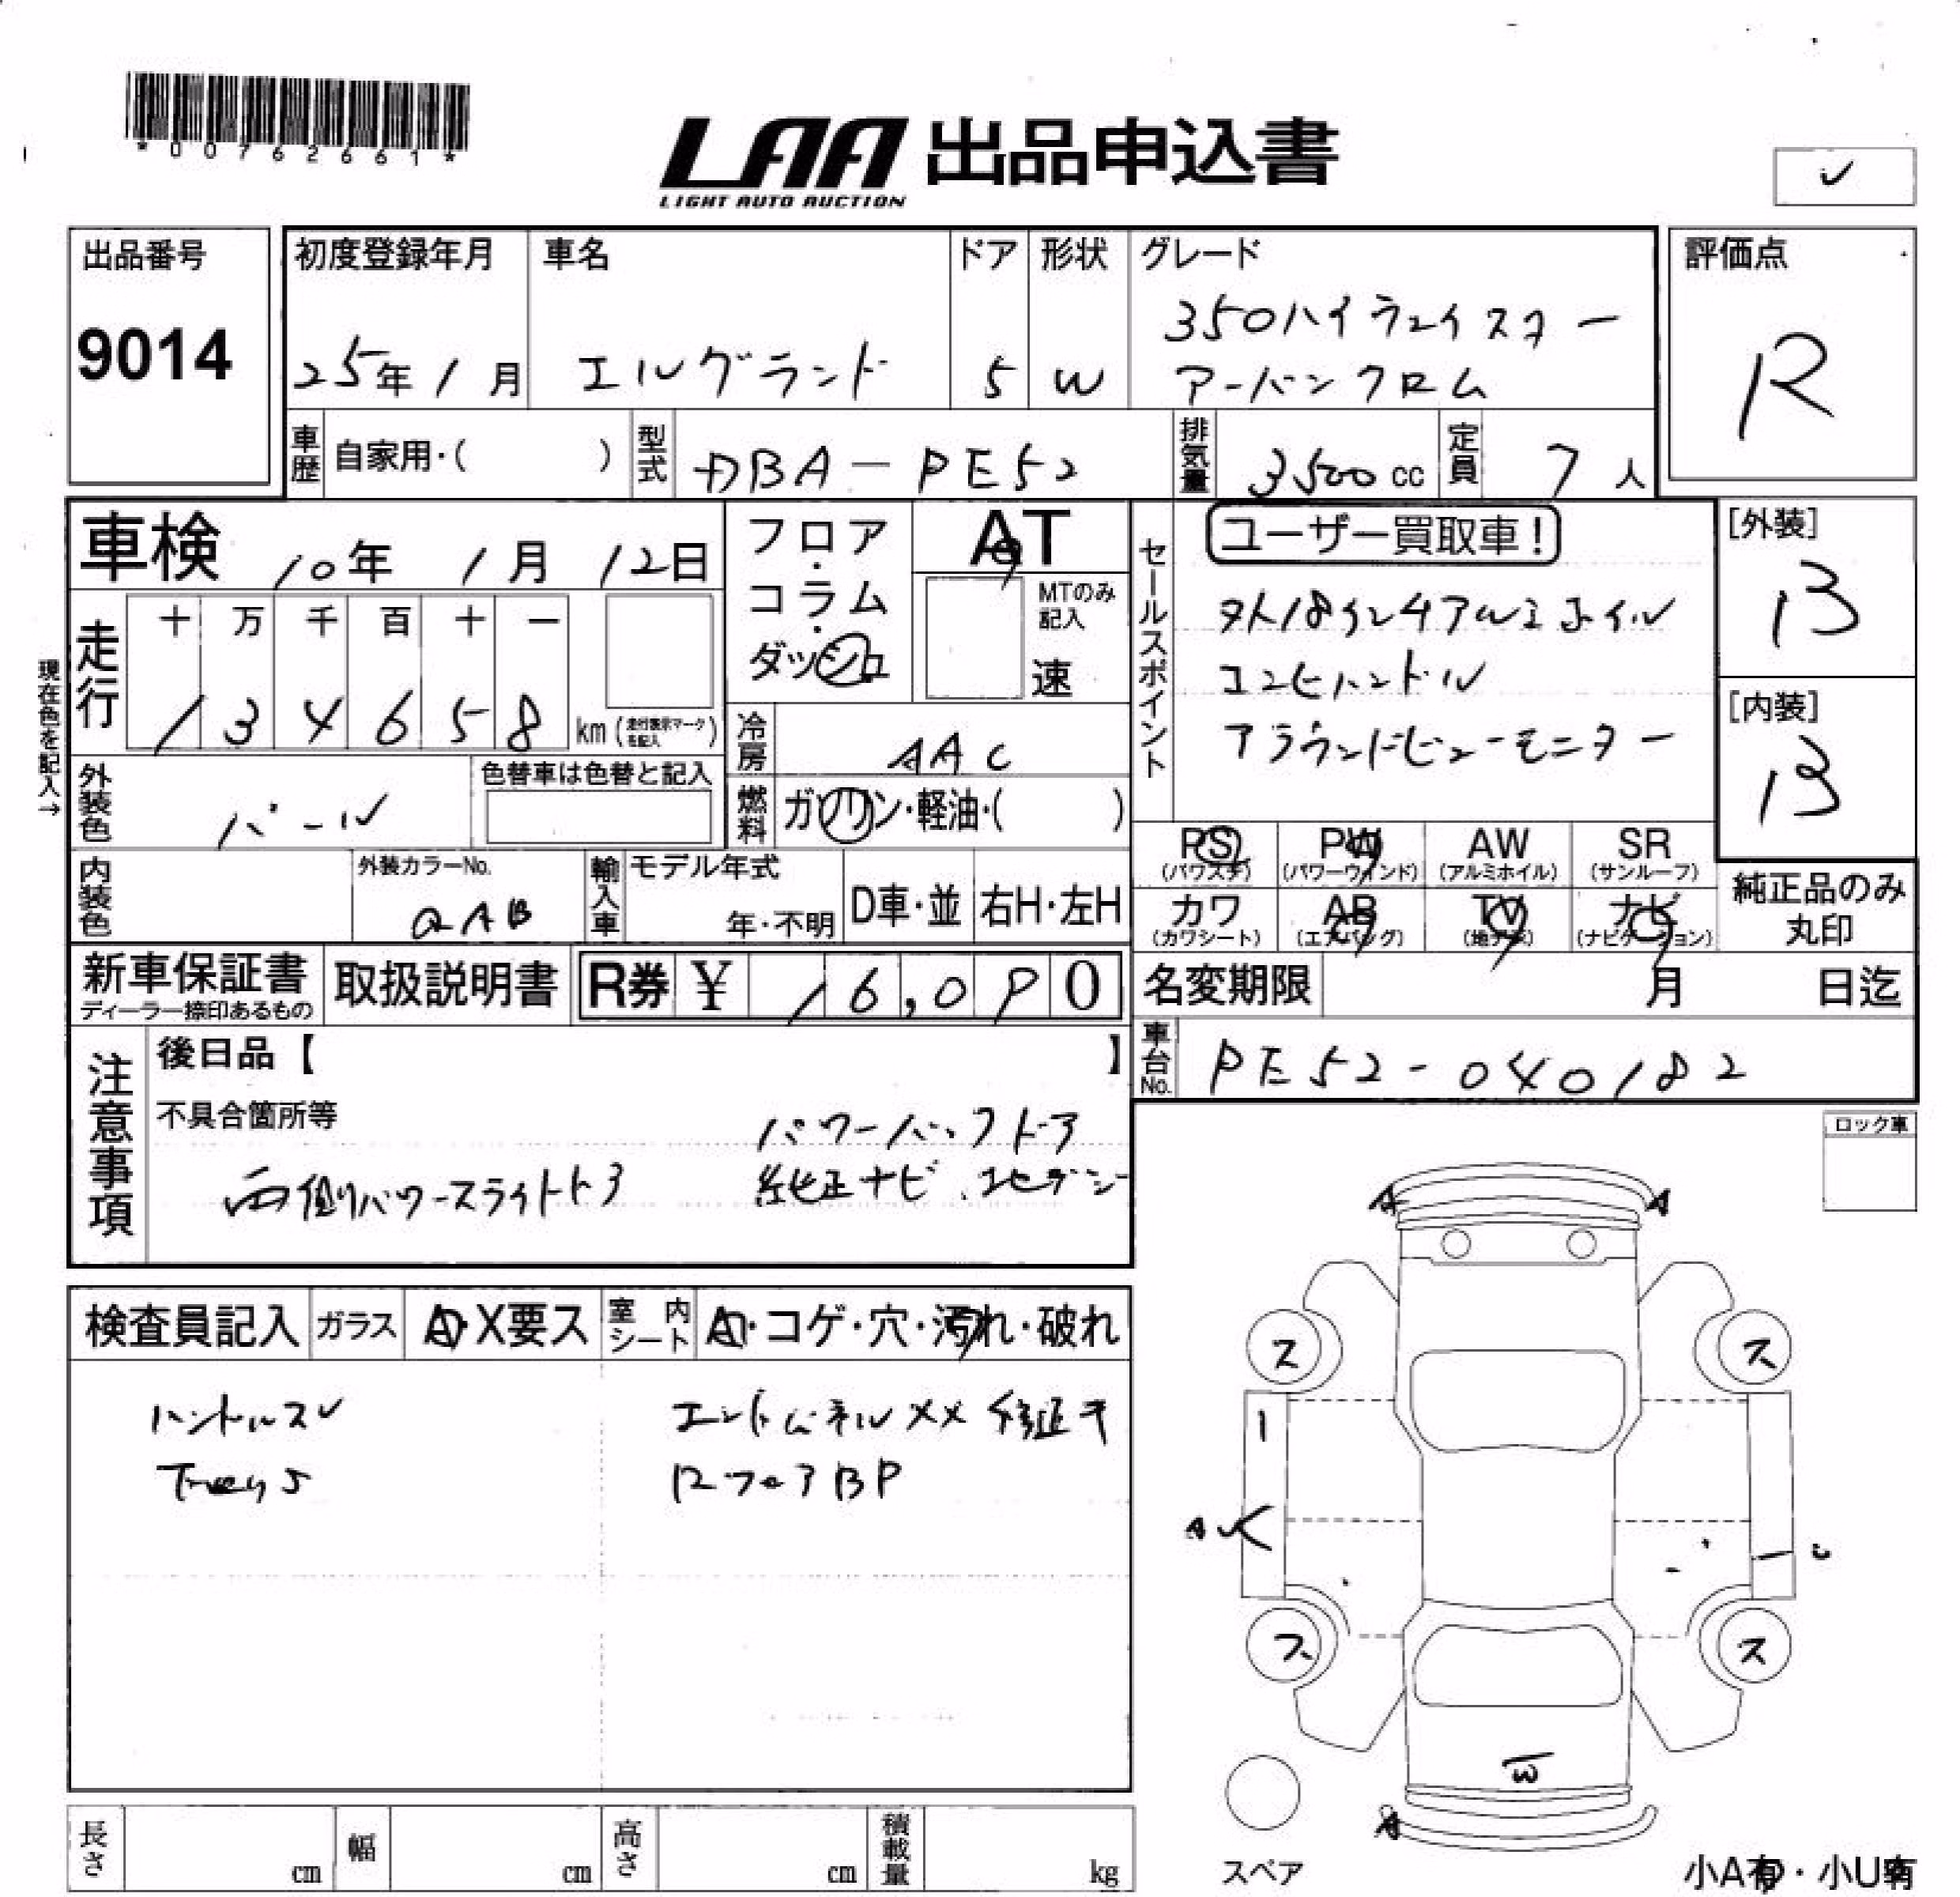 *00762661*
LAA 出品申込書
LIGHT AUTO AUCTION
✓
出品番号
9014
初度登録年月
25年1月
車名
エルグランド
ドア
5
形状
W
グレード
350ハイウェイスター
アーバンクロム
評価点
R
車歴
自家用・( )
型式
DBA-PE52
排気量
3500cc
定員
7人
車検 10年 1月 12日
フロア・コラム・ダッシュ
AT
MTのみ記入
速
セールスポイント
ユーザー買取車!
コンビハンドル
アラウンドビューモニター
[外装]
B
[内装]
B
現在色を記入→
走行
十 万 千 百 十 一
1 3 4 6 5 8 km (走行表示マークを記入)
冷房
AAC
外装色
パール
色替車は色替と記入
燃料
ガソリン・軽油・( )
内装色
外装カラーNo.
QAB
輸入車
モデル年式
年・不明
D車・並
右H・左H
PS (パワステ)
PW (パワーウィンド)
AW (アルミホイル)
SR (サンルーフ)
カワ (カワシート)
AB (エアバッグ)
TV (地デジ)
ナビ (ナビゲーション)
純正品のみ丸印
新車保証書
ディーラー捺印あるもの
取扱説明書
R券 ¥ 16,090
名変期限 月 日迄
車台No.
PE52-040182
注意事項
後日品【 】
不具合箇所等
パワーバックドア
両側パワースライドドア
純正ナビ
ロック車
検査員記入
ガラス
A・X要ス
室内シート
・コゲ・穴・汚れ・破れ
ハンドルスレ
エンドパネルXX 修正キ
RフロアBP
A
A
ス
ス
ス
ス
A
W
スペア
長さ cm
幅 cm
高さ cm
積載量 kg
小A有・小U有